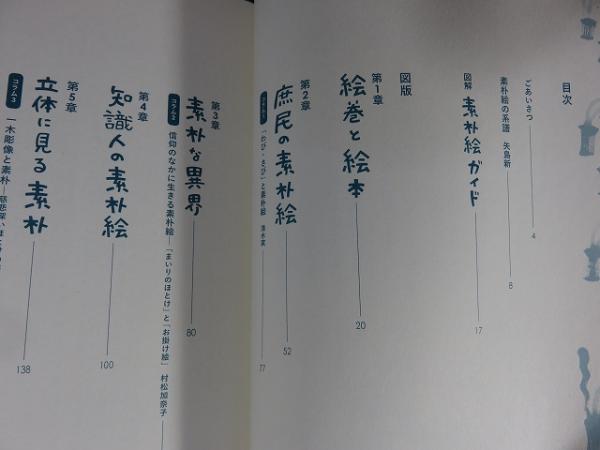 目次
ごあいさつ 4
素朴絵の系譜 矢島新 8
図解 素朴絵ガイド 17
図版
第1章
絵巻と絵本 20
第2章
庶民の素朴絵 52
「わび・さび」と素朴絵 77
第3章
素朴な異界 80
コラム2 信仰のなかに生きる素朴絵―「まいりのほとけ」と「お掛け絵」 村松加奈子
第4章
知識人の素朴絵 100
第5章
立体に見る素朴 138
コラム3 一木彫像と素朴